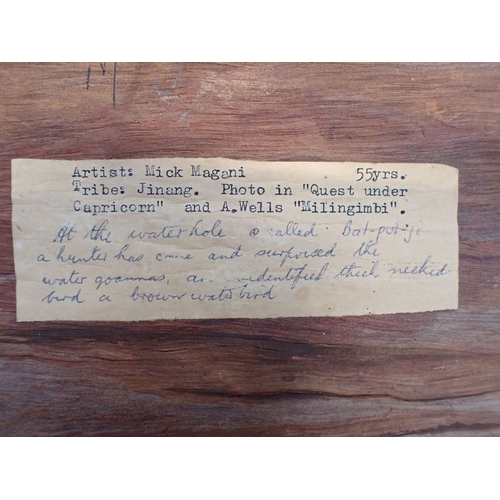 Artist: Mick Magani 55yrs.
Tribe: Jinang. Photo in "Quest under
Capricorn" and A.Wells "Milingimbi".
At the waterhole called
a hunter has come and surprised the
water goannas, an unidentified thick necked
bird a brown water bird